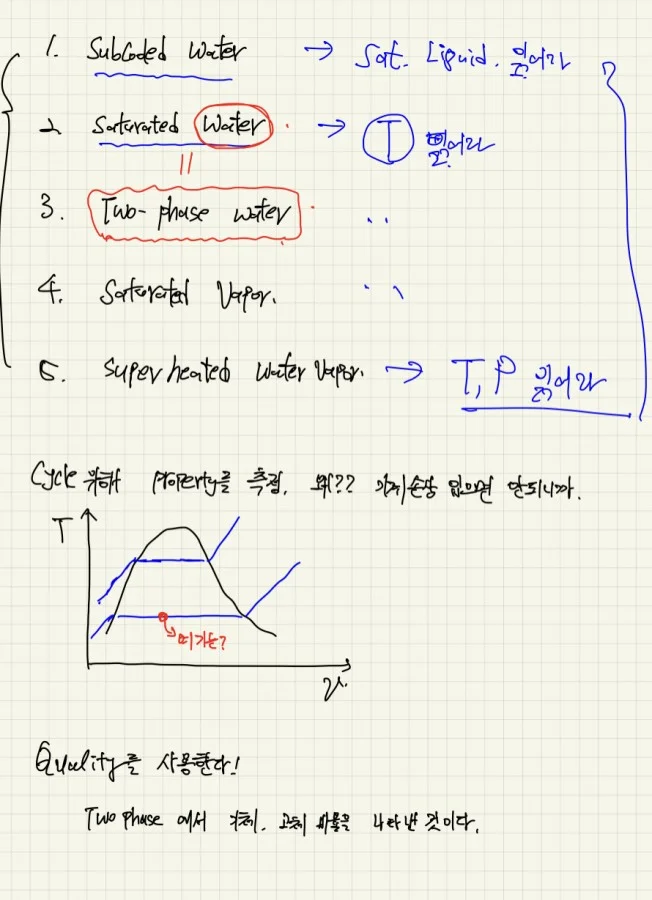 1. Subcooled Water → Sat. Liquid. 읽어라
2. Saturated Water → T 읽어라
=
3. Two-phase water 〃
4. Saturated Vapor. 〃
5. Superheated Water Vapor. → T, P 읽어라
Cycle 위해 property를 측정. 왜?? 기계손상 있으면 안되니까.
T
여기는?
v.
Quality를 사용한다!
Two phase 에서 기체. 고체 비율을 나타낸 것이다.